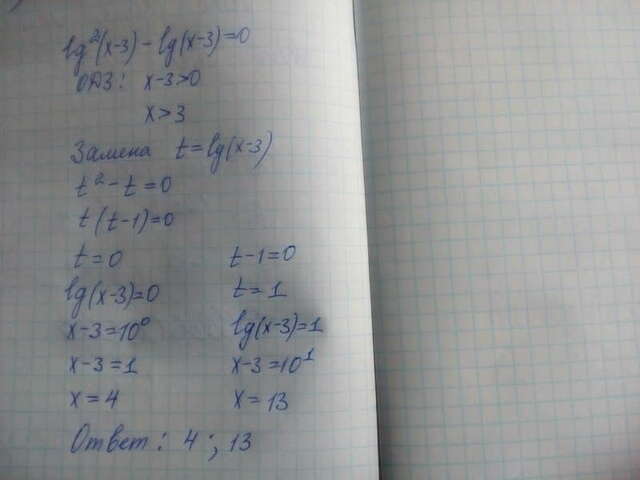 lg²(x-3) - lg(x-3)=0
ОДЗ: x-3>0
x>3
Замена t=lg(x-3)
t²-t=0
t(t-1)=0
t=0 t-1=0
lg(x-3)=0 t=1
x-3=10⁰ lg(x-3)=1
x-3=1 x-3=10¹
x=4 x=13
Ответ: 4; 13